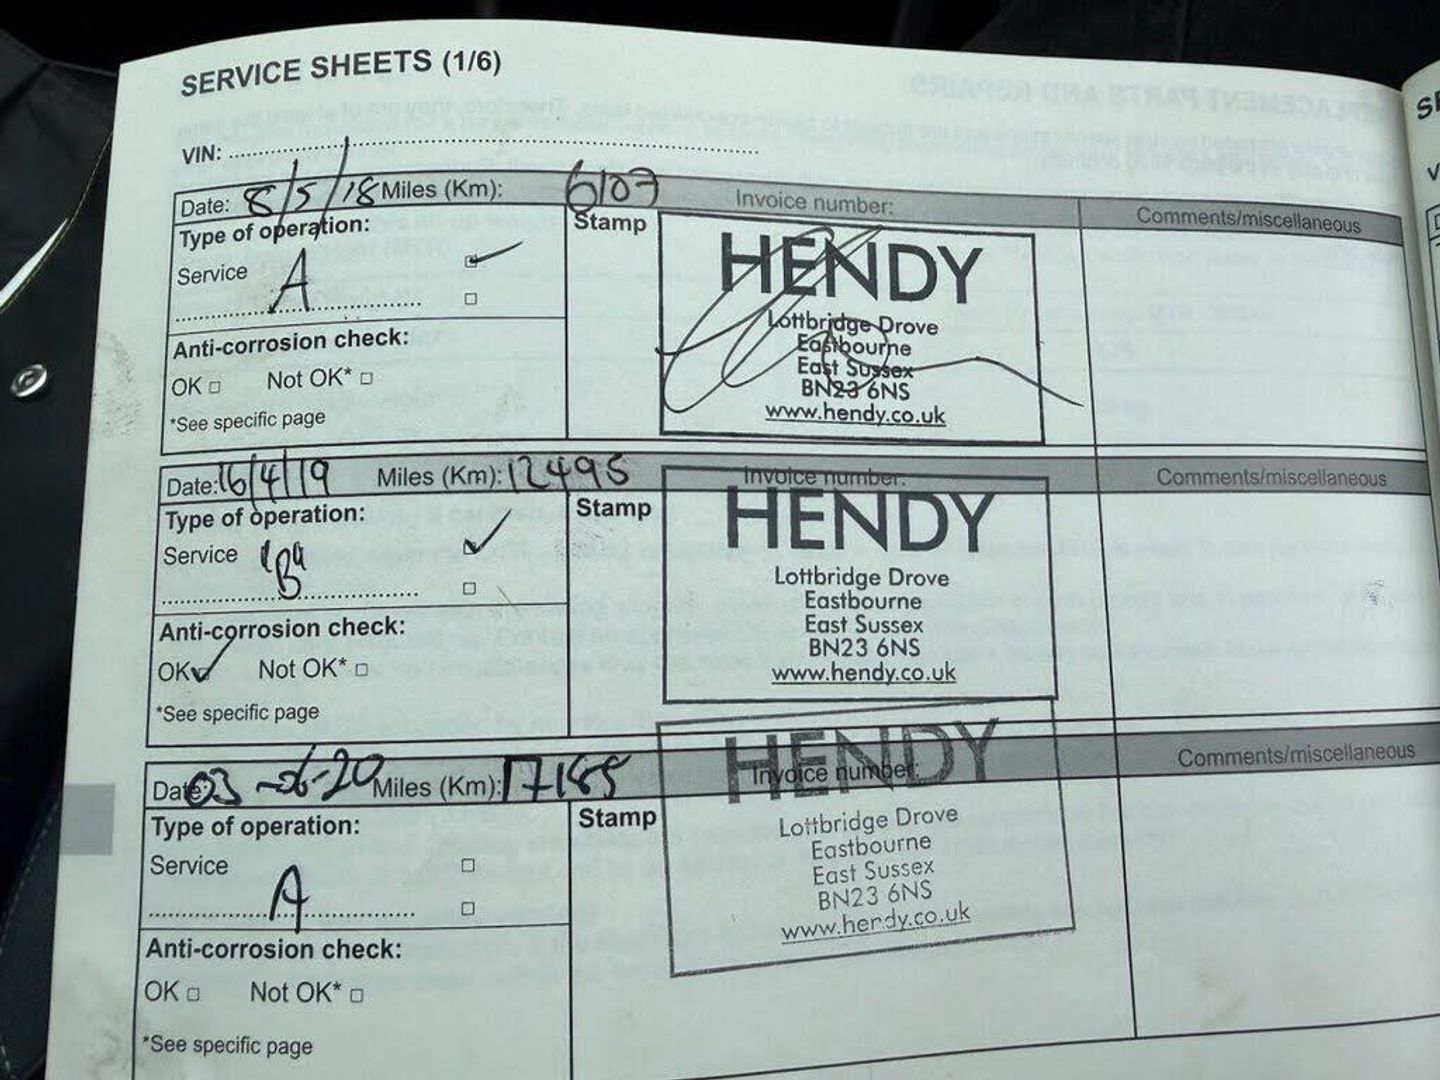 SERVICE SHEETS (1/6)
VIN:
Date: 8/5/18 Miles (Km): 6107 Invoice number: Comments/miscellaneous
Type of operation: Stamp
Service A
HENDY
Lottbridge Drove
Eastbourne
East Sussex
BN23 6NS
www.hendy.co.uk
Anti-corrosion check:
OK Not OK*
*See specific page
Date: 16/4/19 Miles (Km): 12495 Invoice number: Comments/miscellaneous
Type of operation: Stamp
Service "B"
HENDY
Lottbridge Drove
Eastbourne
East Sussex
BN23 6NS
www.hendy.co.uk
Anti-corrosion check:
OK Not OK*
*See specific page
Date: 03-06-20 Miles (Km): 17185 Invoice number: Comments/miscellaneous
Type of operation: Stamp
Service
A
HENDY
Lottbridge Drove
Eastbourne
East Sussex
BN23 6NS
www.hendy.co.uk
Anti-corrosion check:
OK Not OK*
*See specific page